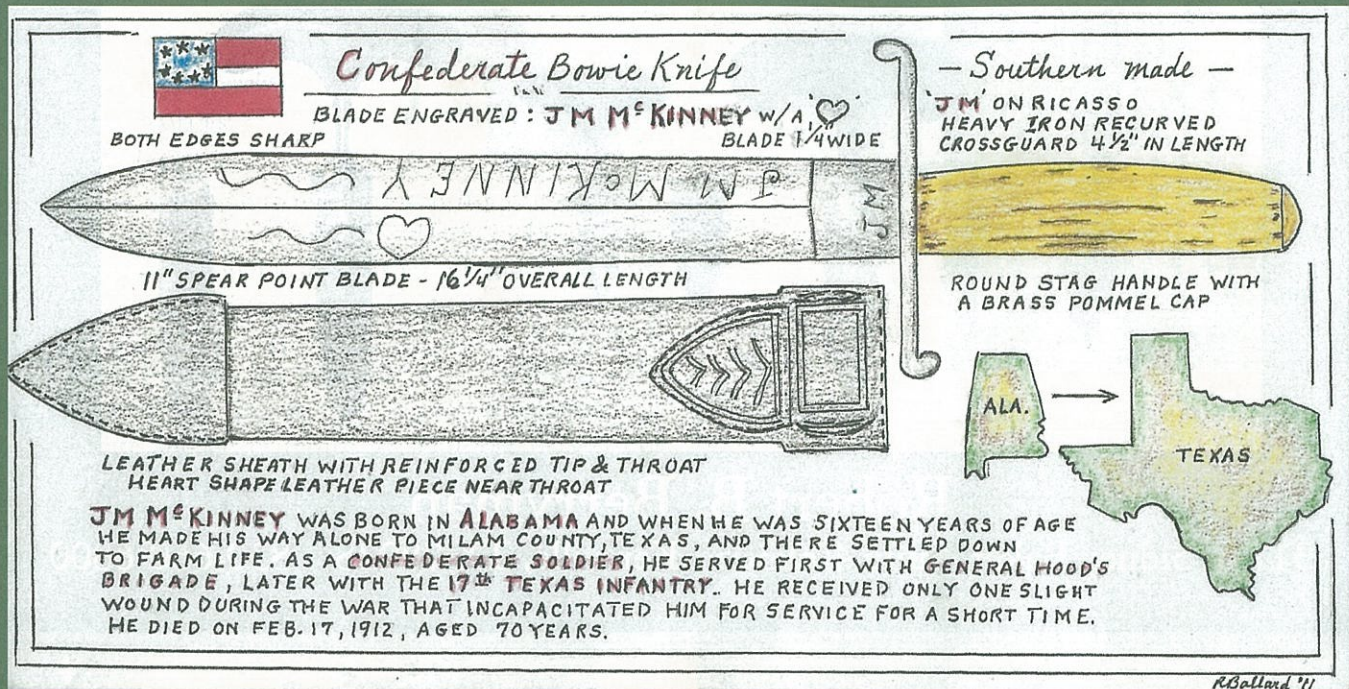 Confederate Bowie Knife
— Southern made —
BLADE ENGRAVED: JM McKINNEY W/A '♡'
'JM' ON RICASSO
HEAVY IRON RECURVED
CROSSGUARD 4½" IN LENGTH
BOTH EDGES SHARP
BLADE 1¼" WIDE
JM McKINNEY
JM
11" SPEAR POINT BLADE - 16¼" OVERALL LENGTH
ROUND STAG HANDLE WITH
A BRASS POMMEL CAP
ALA.
TEXAS
LEATHER SHEATH WITH REINFORCED TIP & THROAT
HEART SHAPE LEATHER PIECE NEAR THROAT
JM McKINNEY WAS BORN IN ALABAMA AND WHEN HE WAS SIXTEEN YEARS OF AGE
HE MADE HIS WAY ALONE TO MILAM COUNTY, TEXAS, AND THERE SETTLED DOWN
TO FARM LIFE. AS A CONFEDERATE SOLDIER, HE SERVED FIRST WITH GENERAL HOOD'S
BRIGADE, LATER WITH THE 17th TEXAS INFANTRY.. HE RECEIVED ONLY ONE SLIGHT
WOUND DURING THE WAR THAT INCAPACITATED HIM FOR SERVICE FOR A SHORT TIME.
HE DIED ON FEB. 17, 1912, AGED 70 YEARS.
RBallard '11